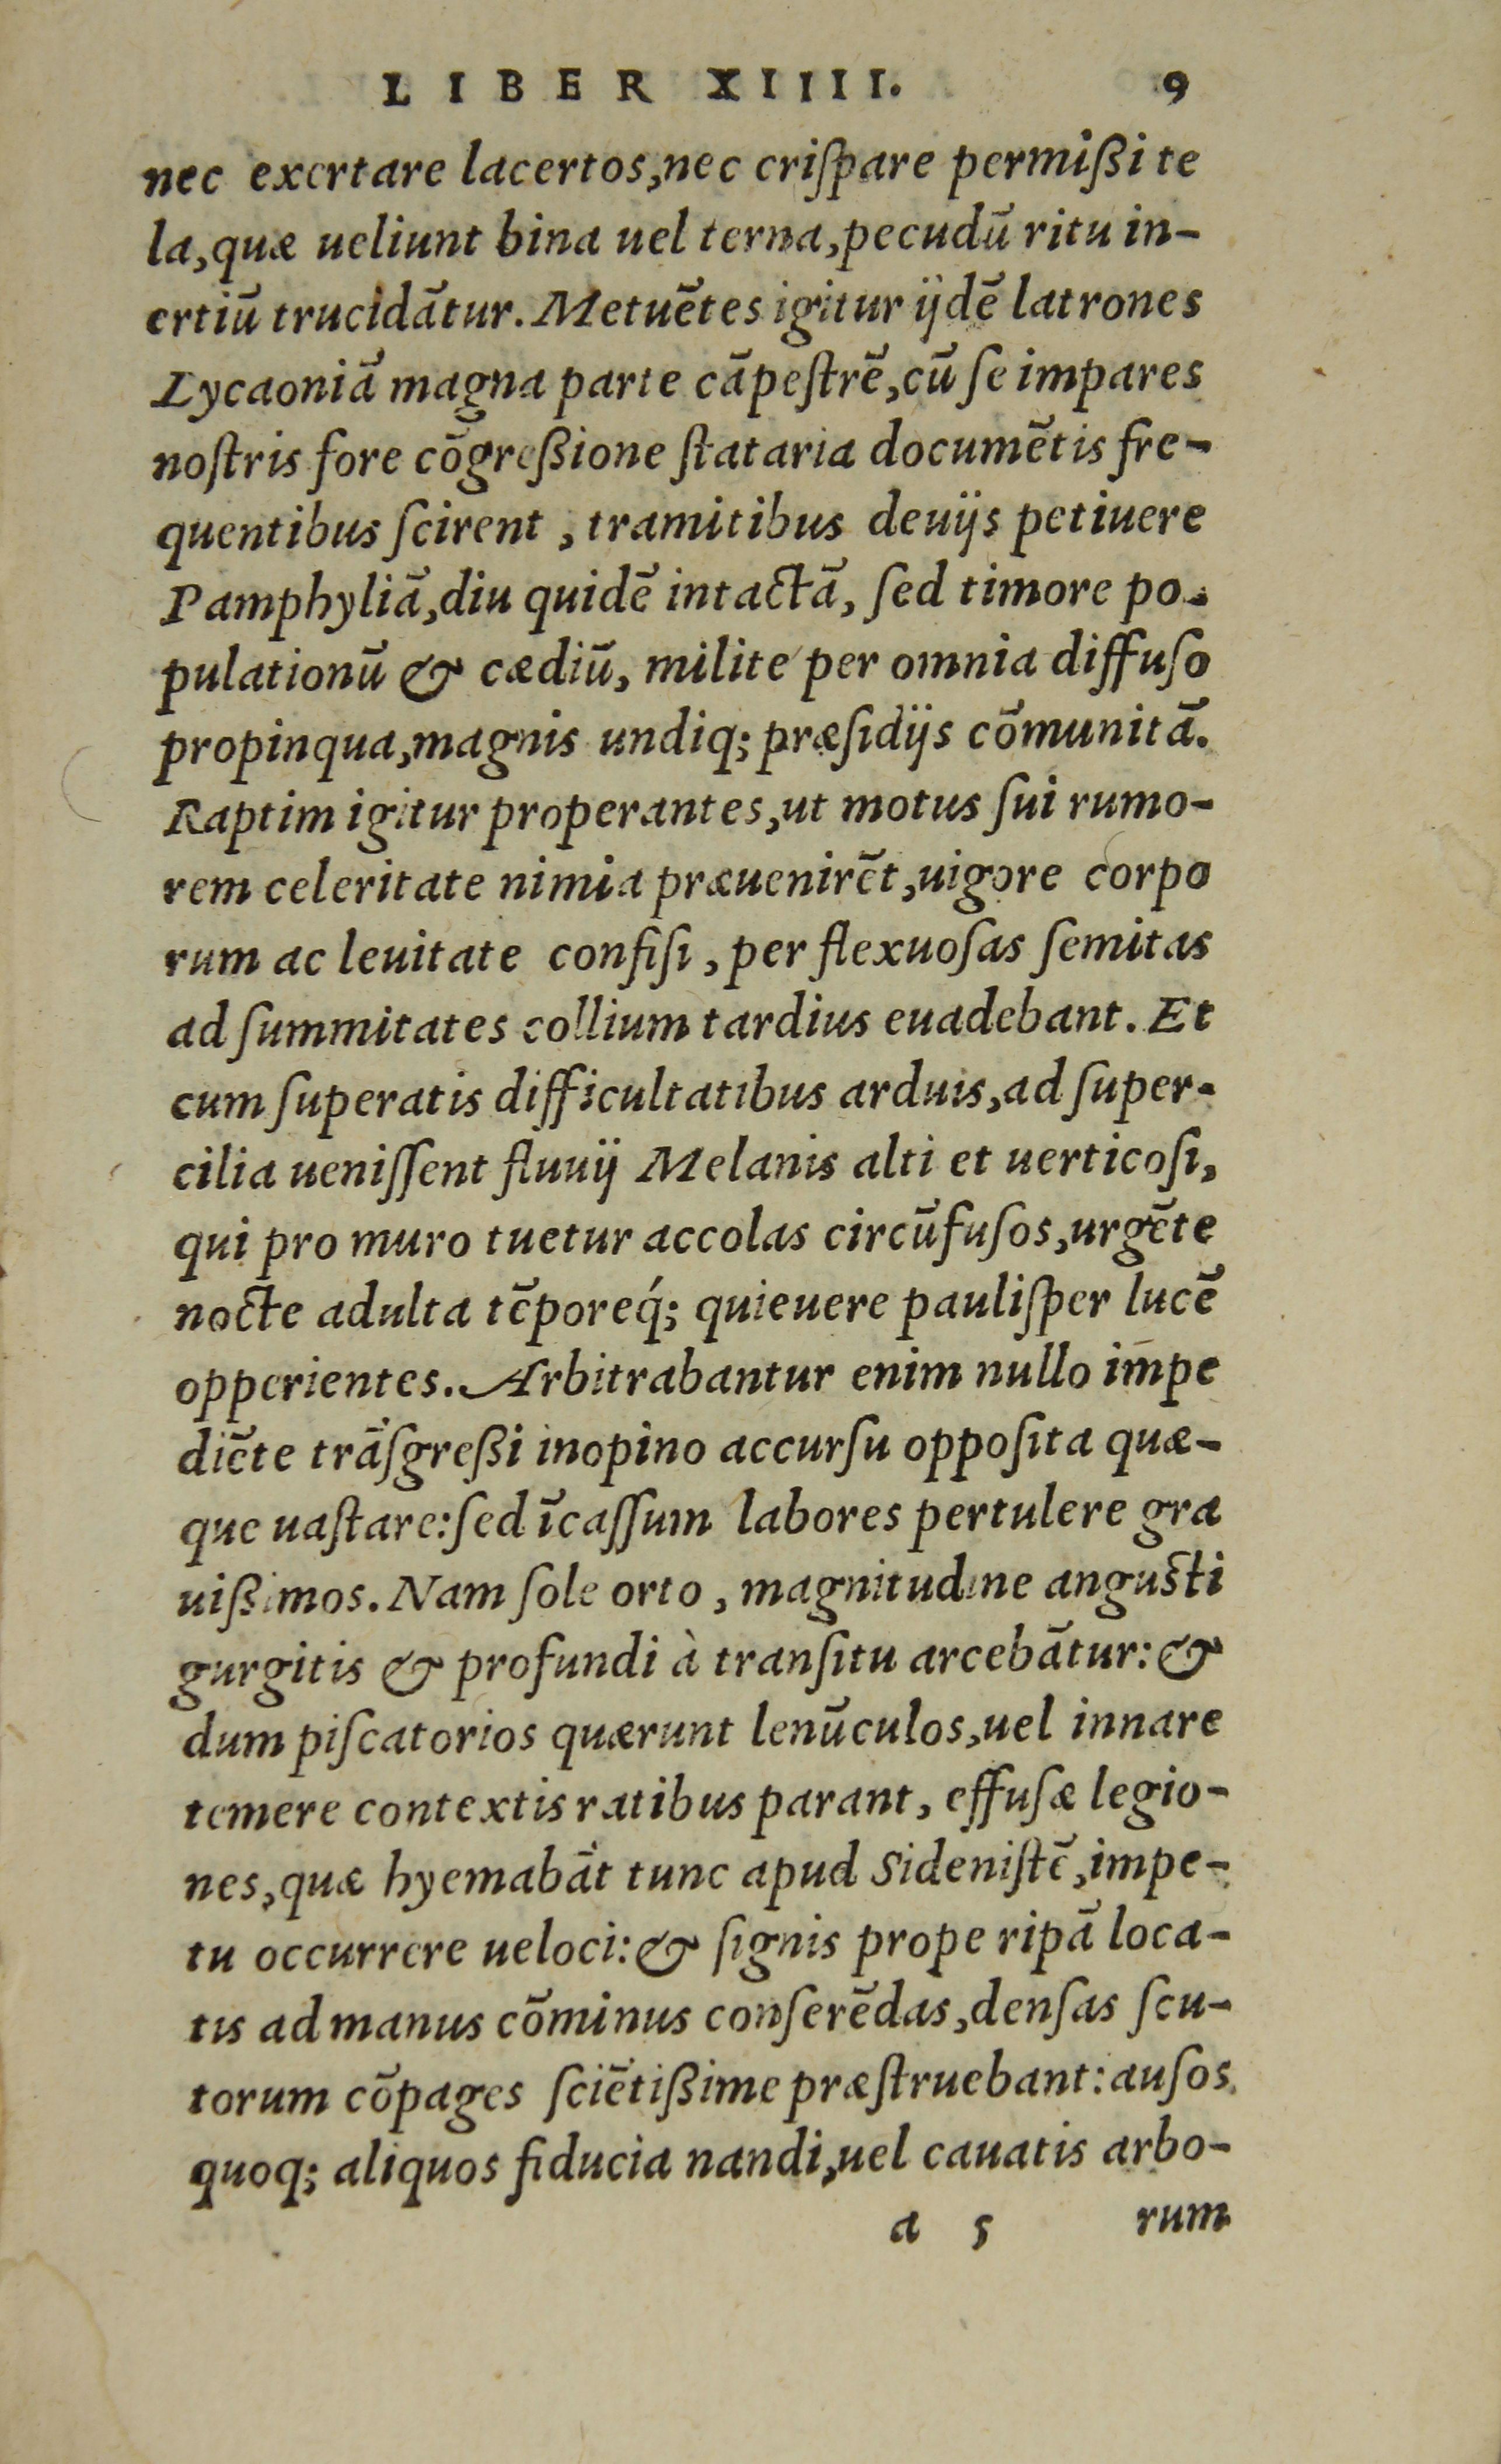 LIBER XIIII. 9
nec exertare lacertos,nec criſpare permißi te
la,quæ ueliunt bina uel terna,pecudū ritu in-
ertiū trucidātur. Metuētes igitur ijdē latrones
Lycaoniā magna parte cāpeſtrē,cū ſe impares
noſtris fore cōgreßione ſtataria documētis fre-
quentibus ſcirent , tramitibus deuijs petiuere
Pamphyliā,diu quidē intactā, ſed timore po-
pulationū & cædiū, milite per omnia diffuſo
propinqua,magnis undiq; præſidijs cōmunitā.
Raptim igitur properantes,ut motus ſui rumo-
rem celeritate nimia præuenirēt,uigore corpo
rum ac leuitate confiſi , per flexuoſas ſemitas
ad ſummitates collium tardius euadebant. Et
cum ſuperatis difficultatibus arduis,ad ſuper-
cilia ueniſſent fluuij Melanis alti et uerticoſi,
qui pro muro tuetur accolas circūfuſos,urgēte
nocte adulta tēporeq́; quieuere pauliſper lucē
opperientes. Arbitrabantur enim nullo im̄pe
diēte trāſgreßi inopino accurſu oppoſita quæ-
que uaſtare:ſed īcaſſum labores pertulere gra
uißimos. Nam ſole orto , magnitudine anguſti
gurgitis & profundi à tranſitu arcebātur: &
dum piſcatorios quærunt lenūculos,uel innare
temere contextis ratibus parant, effuſæ legio-
nes,quæ hyemabāt tunc apud Sideniſtē,impe-
tu occurrere ueloci: & ſignis prope ripā loca-
tis ad manus cōminus conſerēdas,denſas ſcu-
torum cōpages ſciētißime præſtruebant: auſos
quoq; aliquos fiducia nandi,uel cauatis arbo-
a 5 rum